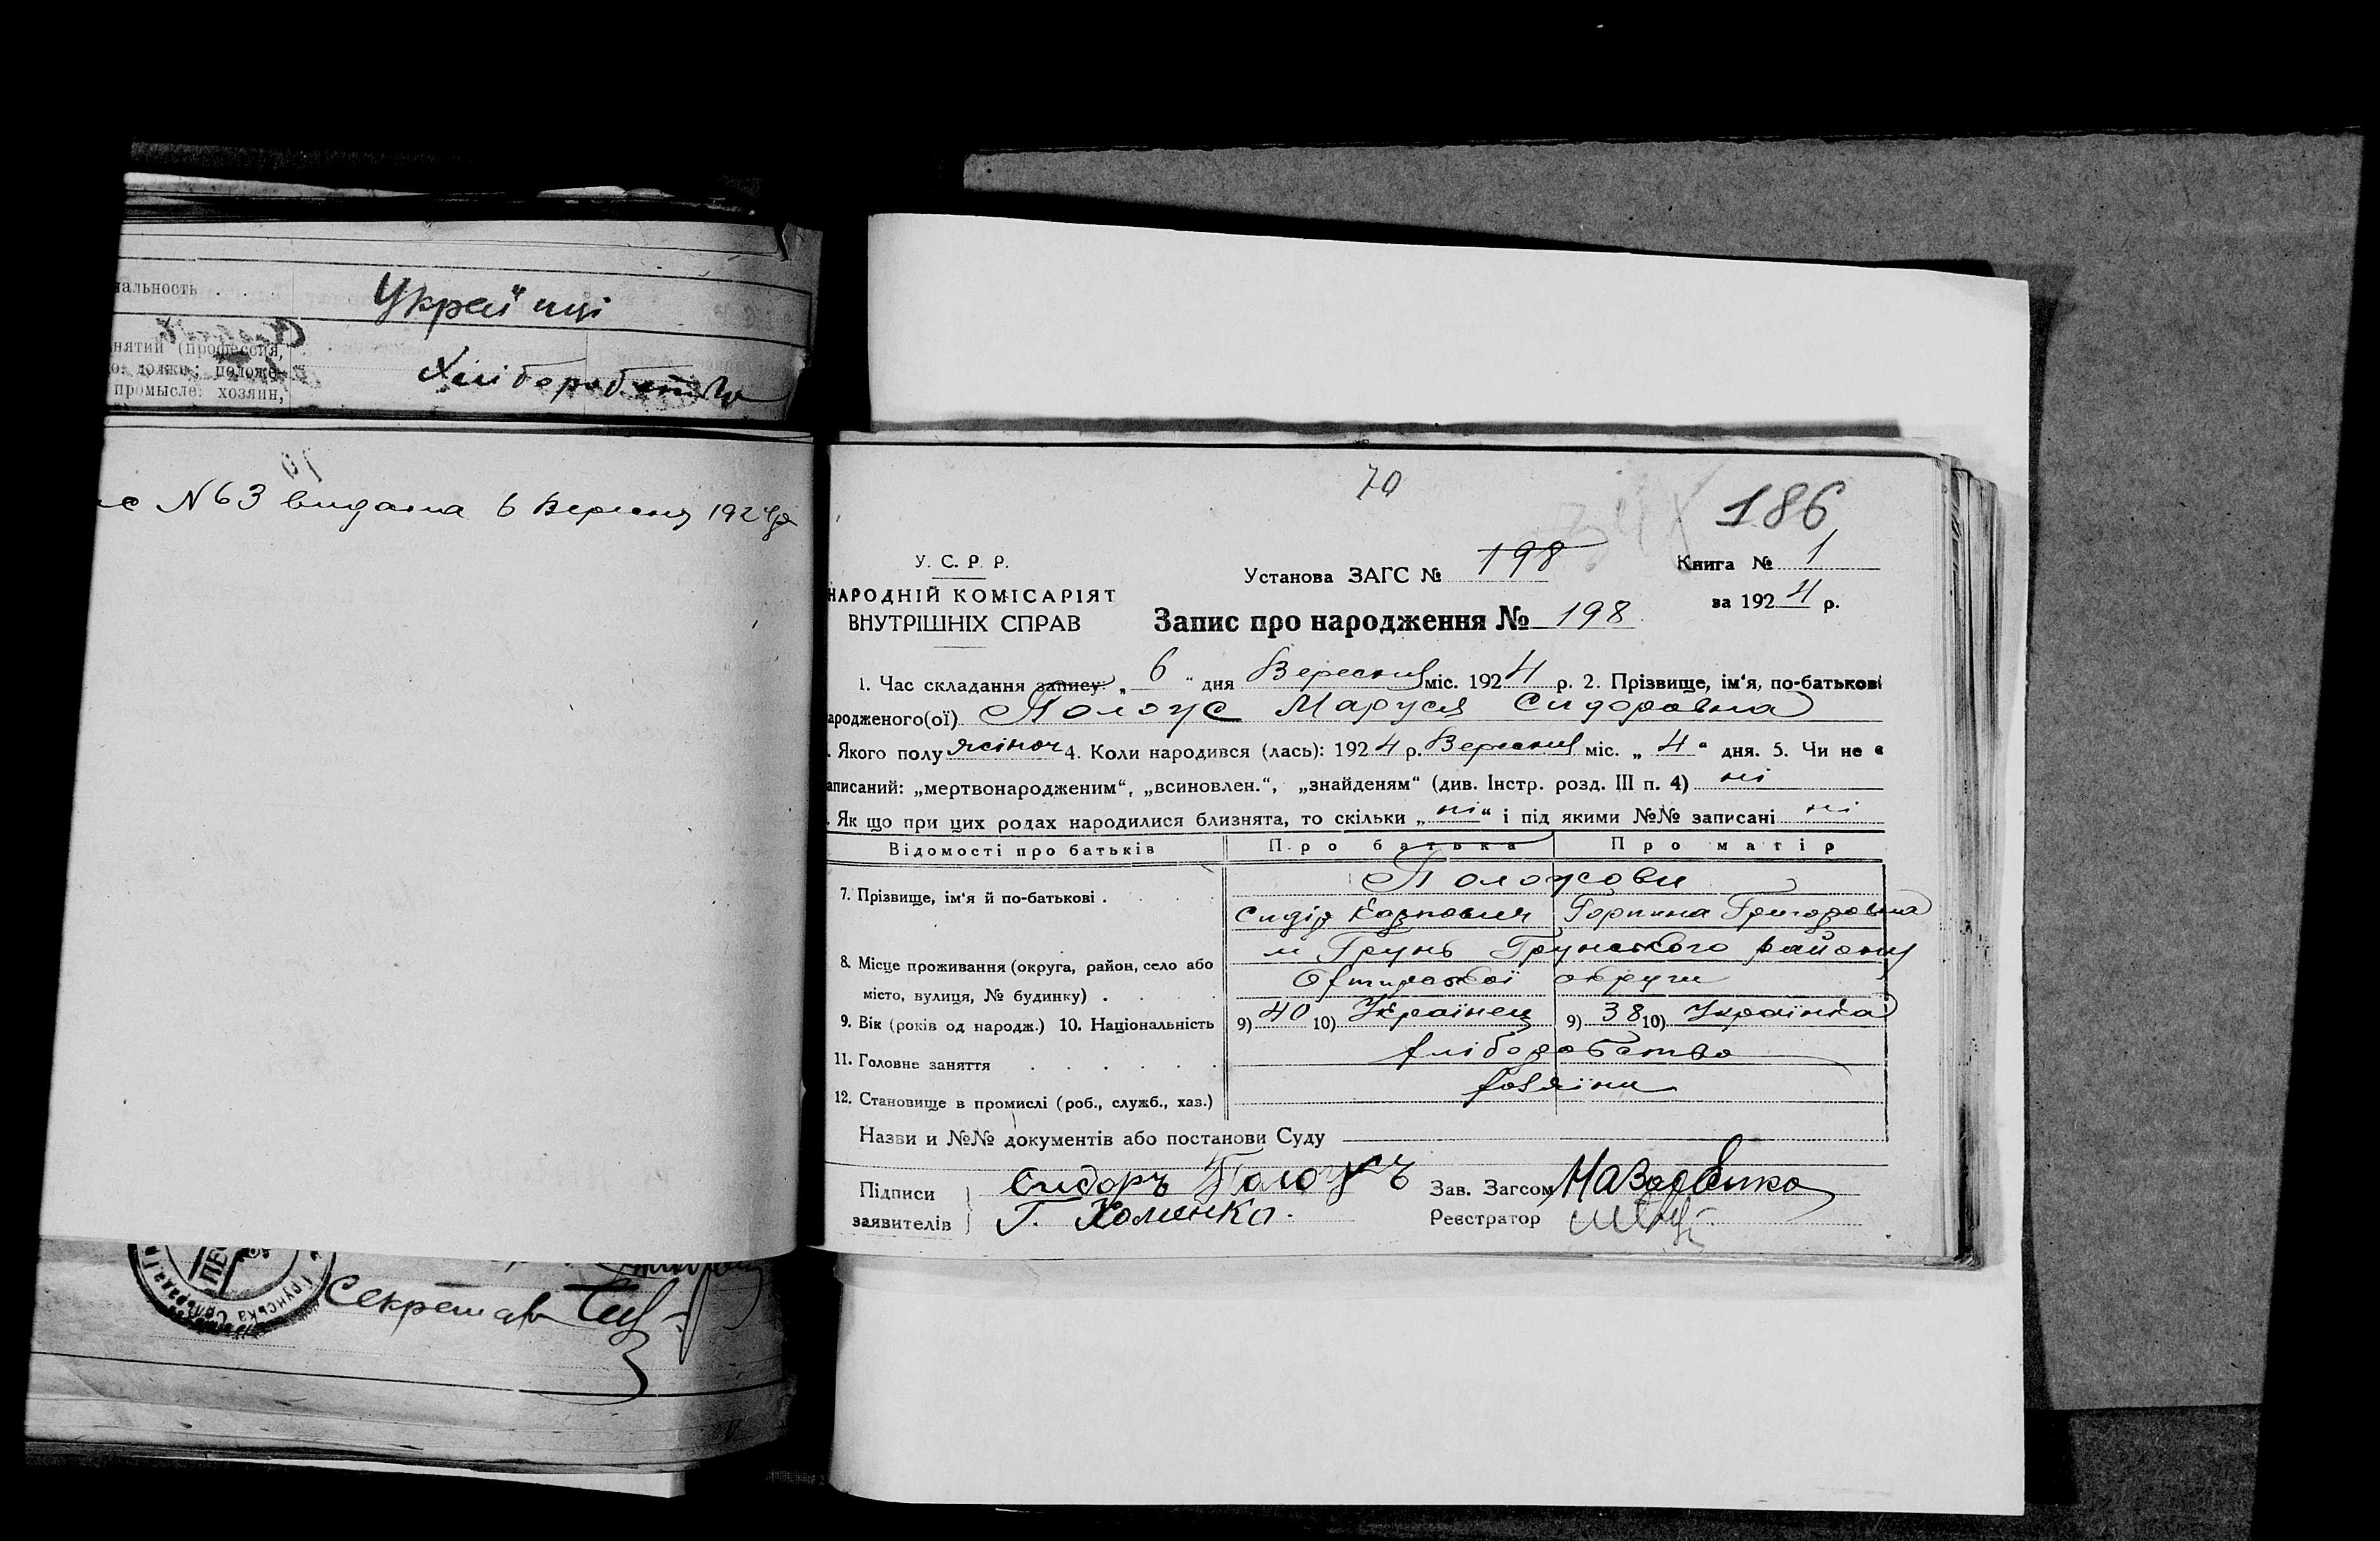 нальность . . . .
Українці
нятий (профессия,
о. должн.; положе-
промысле: хозяин,
Хліборобство
№ 63 видана 6 Вересня 1924 р
70
186
У. С. Р. Р.
НАРОДНІЙ КОМІСАРІЯТ
ВНУТРІШНІХ СПРАВ
Установа ЗАГС № 198
Книга № 1
за 1924 р.
Запис про народження № 198
1. Час складання запису: „ 6 “ дня Вересня міс. 1924 р. 2. Прізвище, ім'я, по-батькові
ародженого(ої) Полоус Маруся Сидоровна
. Якого полу жіноч 4. Коли народився (лась): 1924 р. Вересня міс. „ 4 “ дня. 5. Чи не є
аписаний: „мертвонародженим“, „всиновлен.“, „знайденям“ (див. Інстр. розд. III п. 4) ні
. Як що при цих родах народилися близнята, то скільки „ ні “ і під якими №№ записані ні
Відомості про батьків Про батька Про матір
7. Прізвище, ім'я й по-батькові .
Полоусови
Сидір Карпович Горпина Григоровна
8. Місце проживання (округа, район, село або
місто, вулиця, № будинку) .
м Грунь Грунського району
округи
9. Вік (років од народж.) 10. Національність 9) 40 10) Українец 9) 38 10) Українка
11. Головне заняття хліборобство
12. Становище в промислі (роб., служб., хаз.) хозяїни
Назви и №№ документів або постанови Суду
Підписи
заявителів
Сидоръ Полоусъ
Г. Хоменко.
Зав. Загсом
Реєстратор
Грунська
Секретар